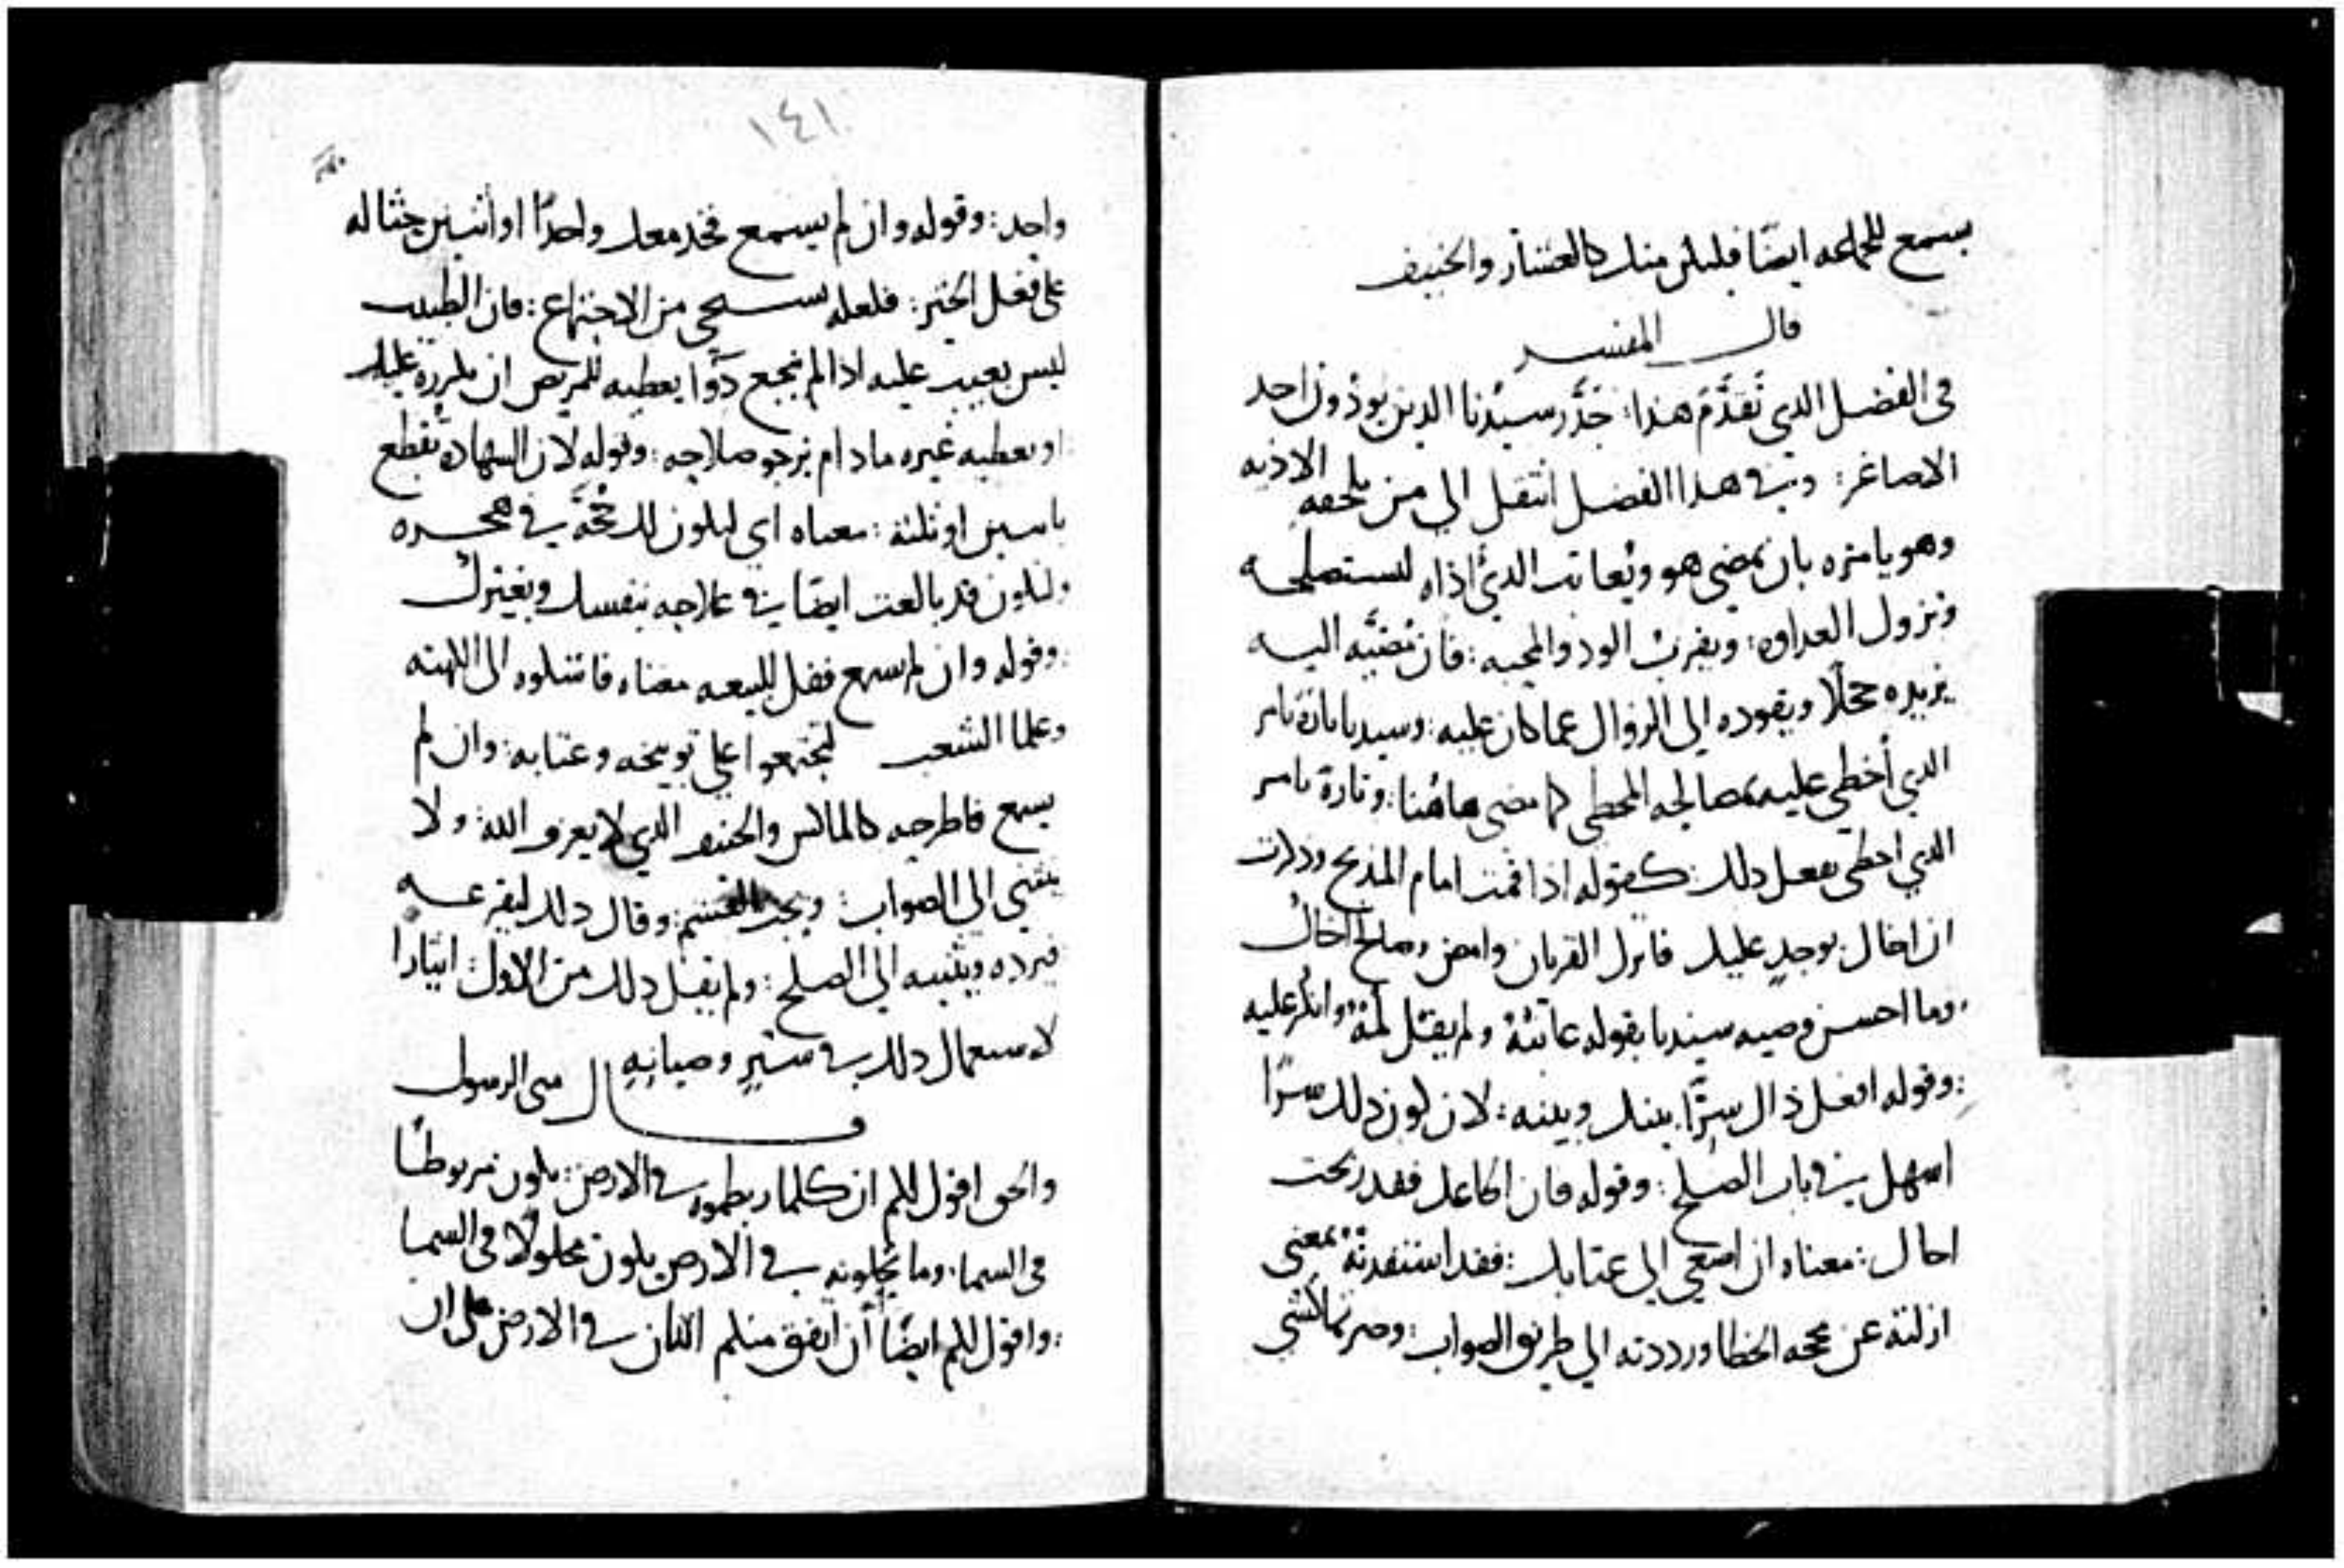 يسمع للجماعه ايضًا فليكن منك كالعشار والحنيف
قال المفسر
في الفصل الذي تقدَّم هذا: حذَّر سيدنا الدين يوذون احد
الاصاغر: وفي هذا الفصل انتقل الي من يلحقه الاذيه
وهو يامره بان يمضي هو ويُعاتب الديَ اذاه ليستصلحه
وتزول العداوه: ويقرب الود والمحبه: فان مُضيَّه اليه
يزيده خجلًا ويقوده الي الزوال عما كان عليه: وسيدنا تارة يامر
الدي أخطي عليه بمصالحه المخطي كما مضي هاهُنا: وتارة يامر
الدي اخطي بفعل دلك: كقوله اذا قمت امام المذبح وذكرت
ان اخاك يوجد عليك فاترك القربان وامض وصالح اخاك
وما احسن وصيه سيدنا بقوله عاتبهُ ولم يقل لمهُ وانكر عليه
: وقوله افعل ذاك سِرًّا بينك وبينه: لان كون دلك سرًا
اسهل في باب الصلح: وقوله فان اطاعك فقد ربحت
اخاك: معناه ان اصغي الي عتابك: فقد استنقدتهُ بمعني
ازلته عن محجه الخطا ورددته الي طريق الصواب: وصرتما كشي
١٤١
واحد: وقوله وان لم يسمع فخد معك واحدًا او اثنين حثا له
على فعل الخير: فلعله يستحي من الاجتماع: فان الطبيب
ليس بعيب عليه اذا لم ينجع دوًا يعطيه للمريض ان يكرره عليه
او يعطيه غيره مادام يرجو صلاحه: وقوله لان الشهاده تقطع
باثنين او ثلثه: معناه اي ليكون لك حُجَّه في هجره
ولتكون قد بالغت ايضا في علاجه بنفسك وبغيرك
: وقوله وان لم يسمع فقل للبيعه معناه فاشكوه الى الكهنه
وعلما الشعب ليجتمعوا علي توبيخه وعتابه: وان لم
يسمع فاطرحه كالماكس والحنيف الدي لا يعرف الله: ولا
ينثني الي الصواب: ويجحد القسم: وقال دلك ليفزعه
فيرده ويثنيه الي الصلح: ولم يقل دلك من الاول: ايثارًا
لاستعمال دلك في سترٍ وصيانهِ
قال متى الرسول
والحق اقول لكم ان كلما ربطموه في الارض: يكون مربوطًا
في السما، وما تحلونه في الارض يكون محلولًا في السما
: واقول لكم ايضًا أن اتفق منكم اثنان في الارض على ان